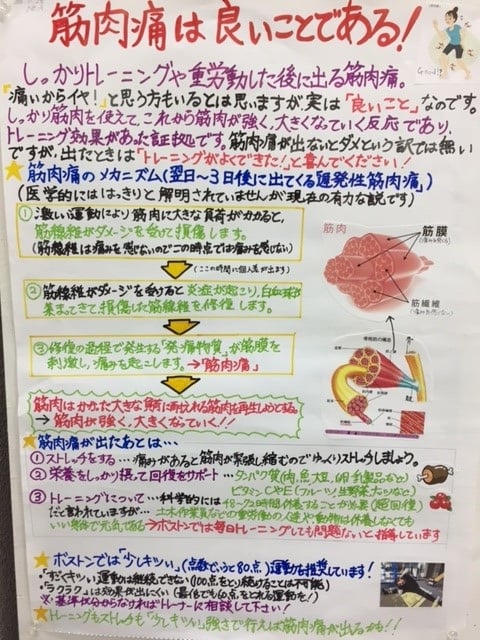 筋肉痛は良いことである!
Good!?
しっかりトレーニングや重労働した後に出る筋肉痛。
「痛いからイヤ!」と思う方もいるとは思いますが、実は「良いこと」なのです。
しっかり筋肉を使えて、これから筋肉が強く、大きくなっていく反応であり、
トレーニング効果があった証拠です。筋肉痛が出ないとダメという訳では無い
ですが、出たときは「トレーニングがよくできた!」と喜んでください!
★筋肉痛のメカニズム(翌日〜3日後に出てくる遅発性筋肉痛)
(医学的にははっきりと解明されていませんが現在の有力な説です)
①激しい運動により筋肉に大きな負荷がかかると、
筋線維がダメージを受けて損傷します。
(筋線維は痛みを感じないのでこの時点では痛みを感じない)
(ここの時間に個人差が出ます)
②筋線維がダメージを受けると炎症が起こり、白血球が
集まってきて、損傷した筋線維を修復します。
③修復の過程で発生する「発痛物質」が筋膜を
刺激し、痛みを起こします。→"筋肉痛"
筋肉はかかった大きな負荷に耐えれる筋肉を再生しようとする。
→強く、大きくなっていく!!
筋肉
筋膜
(痛みを感じる)
筋繊維
(痛みを感じない)
骨格筋の構造
★筋肉痛が出たあとは…
①ストレッチをする…痛みがあると筋肉が緊張し縮むのでゆっくりストレッチしましょう。
②栄養をしっかり摂って回復をサポート…タンパク質(肉、魚、大豆、卵、乳製品など)
ビタミンCやE(フルーツ、生野菜、ナッツなど)
③トレーニングについて…科学的には48〜72時間休養することが効果(超回復)
だと言われていますが…土木作業員などの重労働の人達や動物は休養しなくても
いい身体で元気である→ボストンでは毎日トレーニングしても問題ないと指導しています
★ボストンでは「少しキツい」(点数でいうと80点)運動を推奨しています!
・「すごくキツい」運動は継続できない(100点をとり続けることは不可能)
・「ラクラク」は効果が出にくい(最低でも60点をとれる運動を!)
※基準が分からなければトレーナーに相談して下さい!
★トレーニングもストレッチも「少しキツい」強さで行えば筋肉痛が出るかも!!